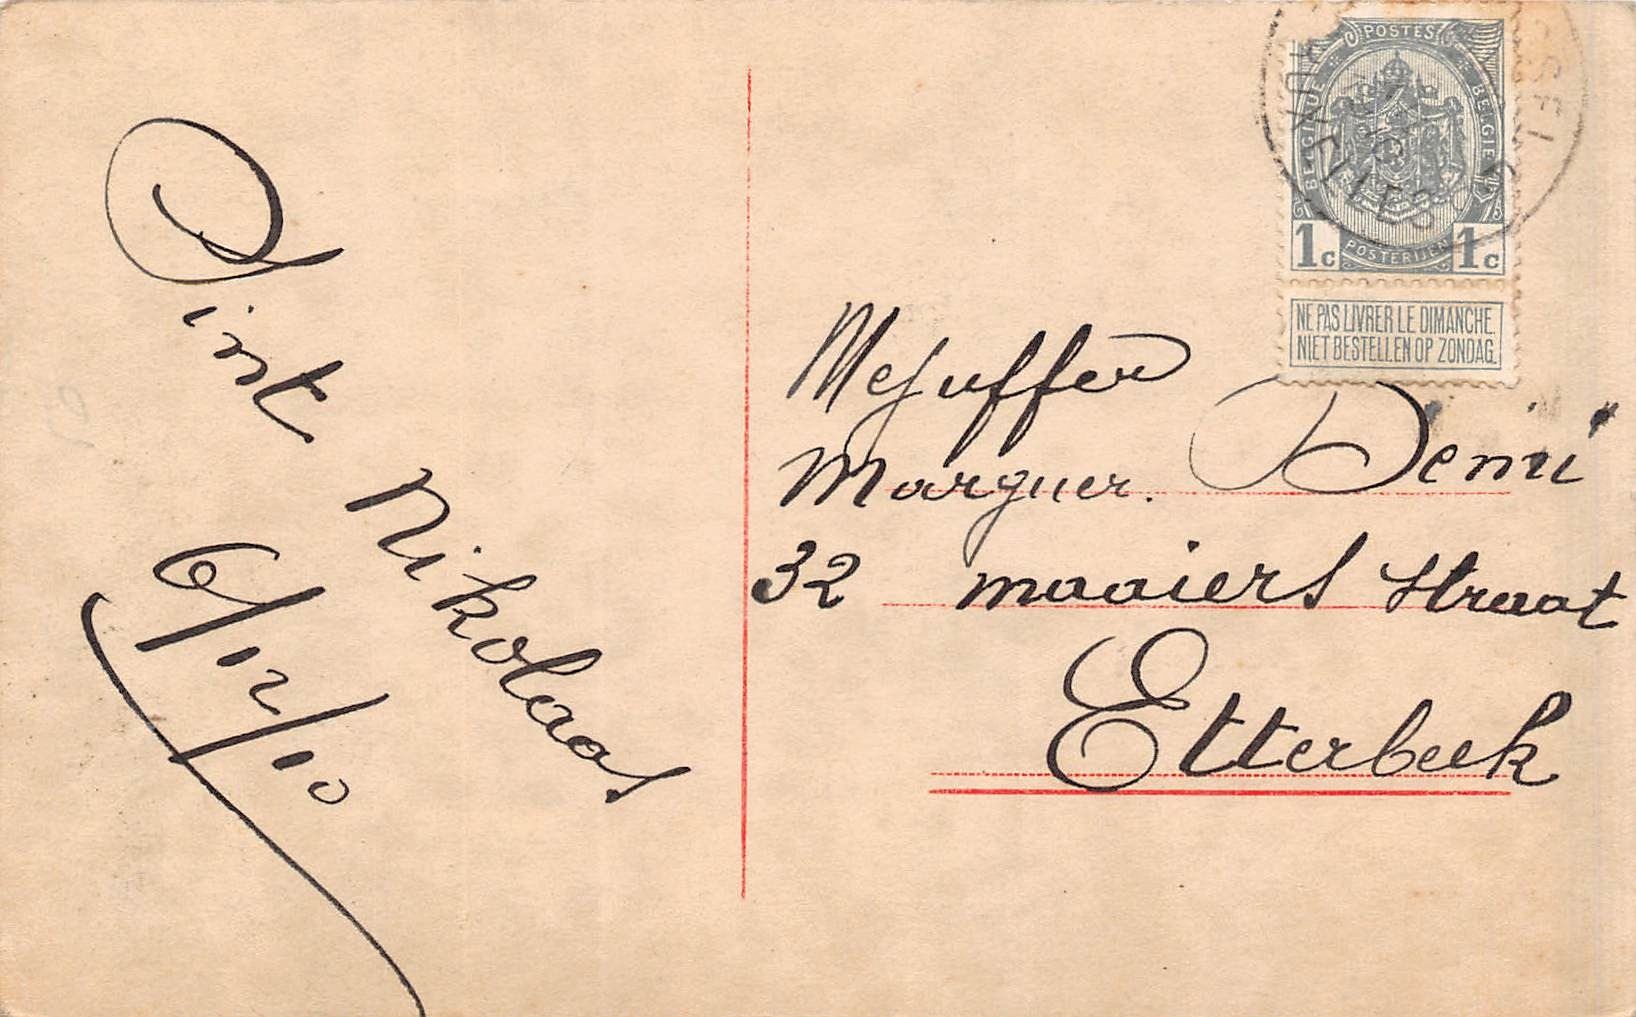 Sint Nikolaas
6/12/10
POSTES
BELGIQUE
BELGIE
POSTERIJEN
1c 1c
NE PAS LIVRER LE DIMANCHE.
NIET BESTELLEN OP ZONDAG.
Mejuffer
Marguer. Demi
32 maaiers straat
Etterbeek